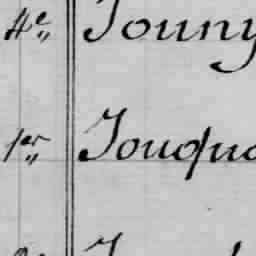 4e Touny
1er Touqua